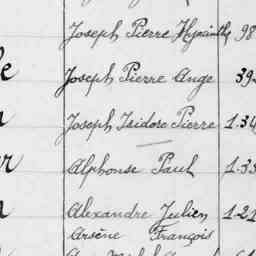 Joseph Pierre Hyacinthe 98
Joseph Pierre Ange 39
Joseph Isidore Pierre 1.34
Alphonse Paul 1.33
Alexandre Julien 1.21
Arsène François